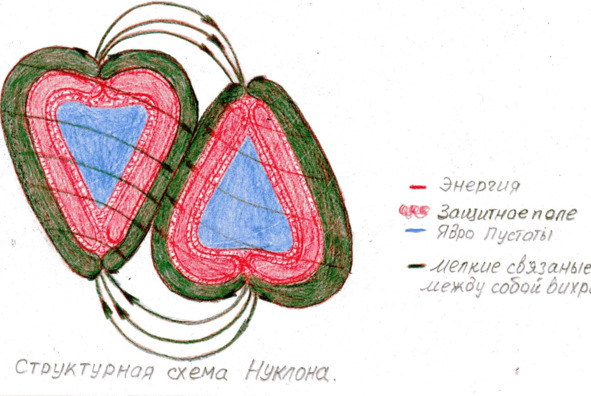 Энергия
Защитное поле
Ядро Пустаты
мелкие связаные
между собой вихр
Структурная схема Нуклона.